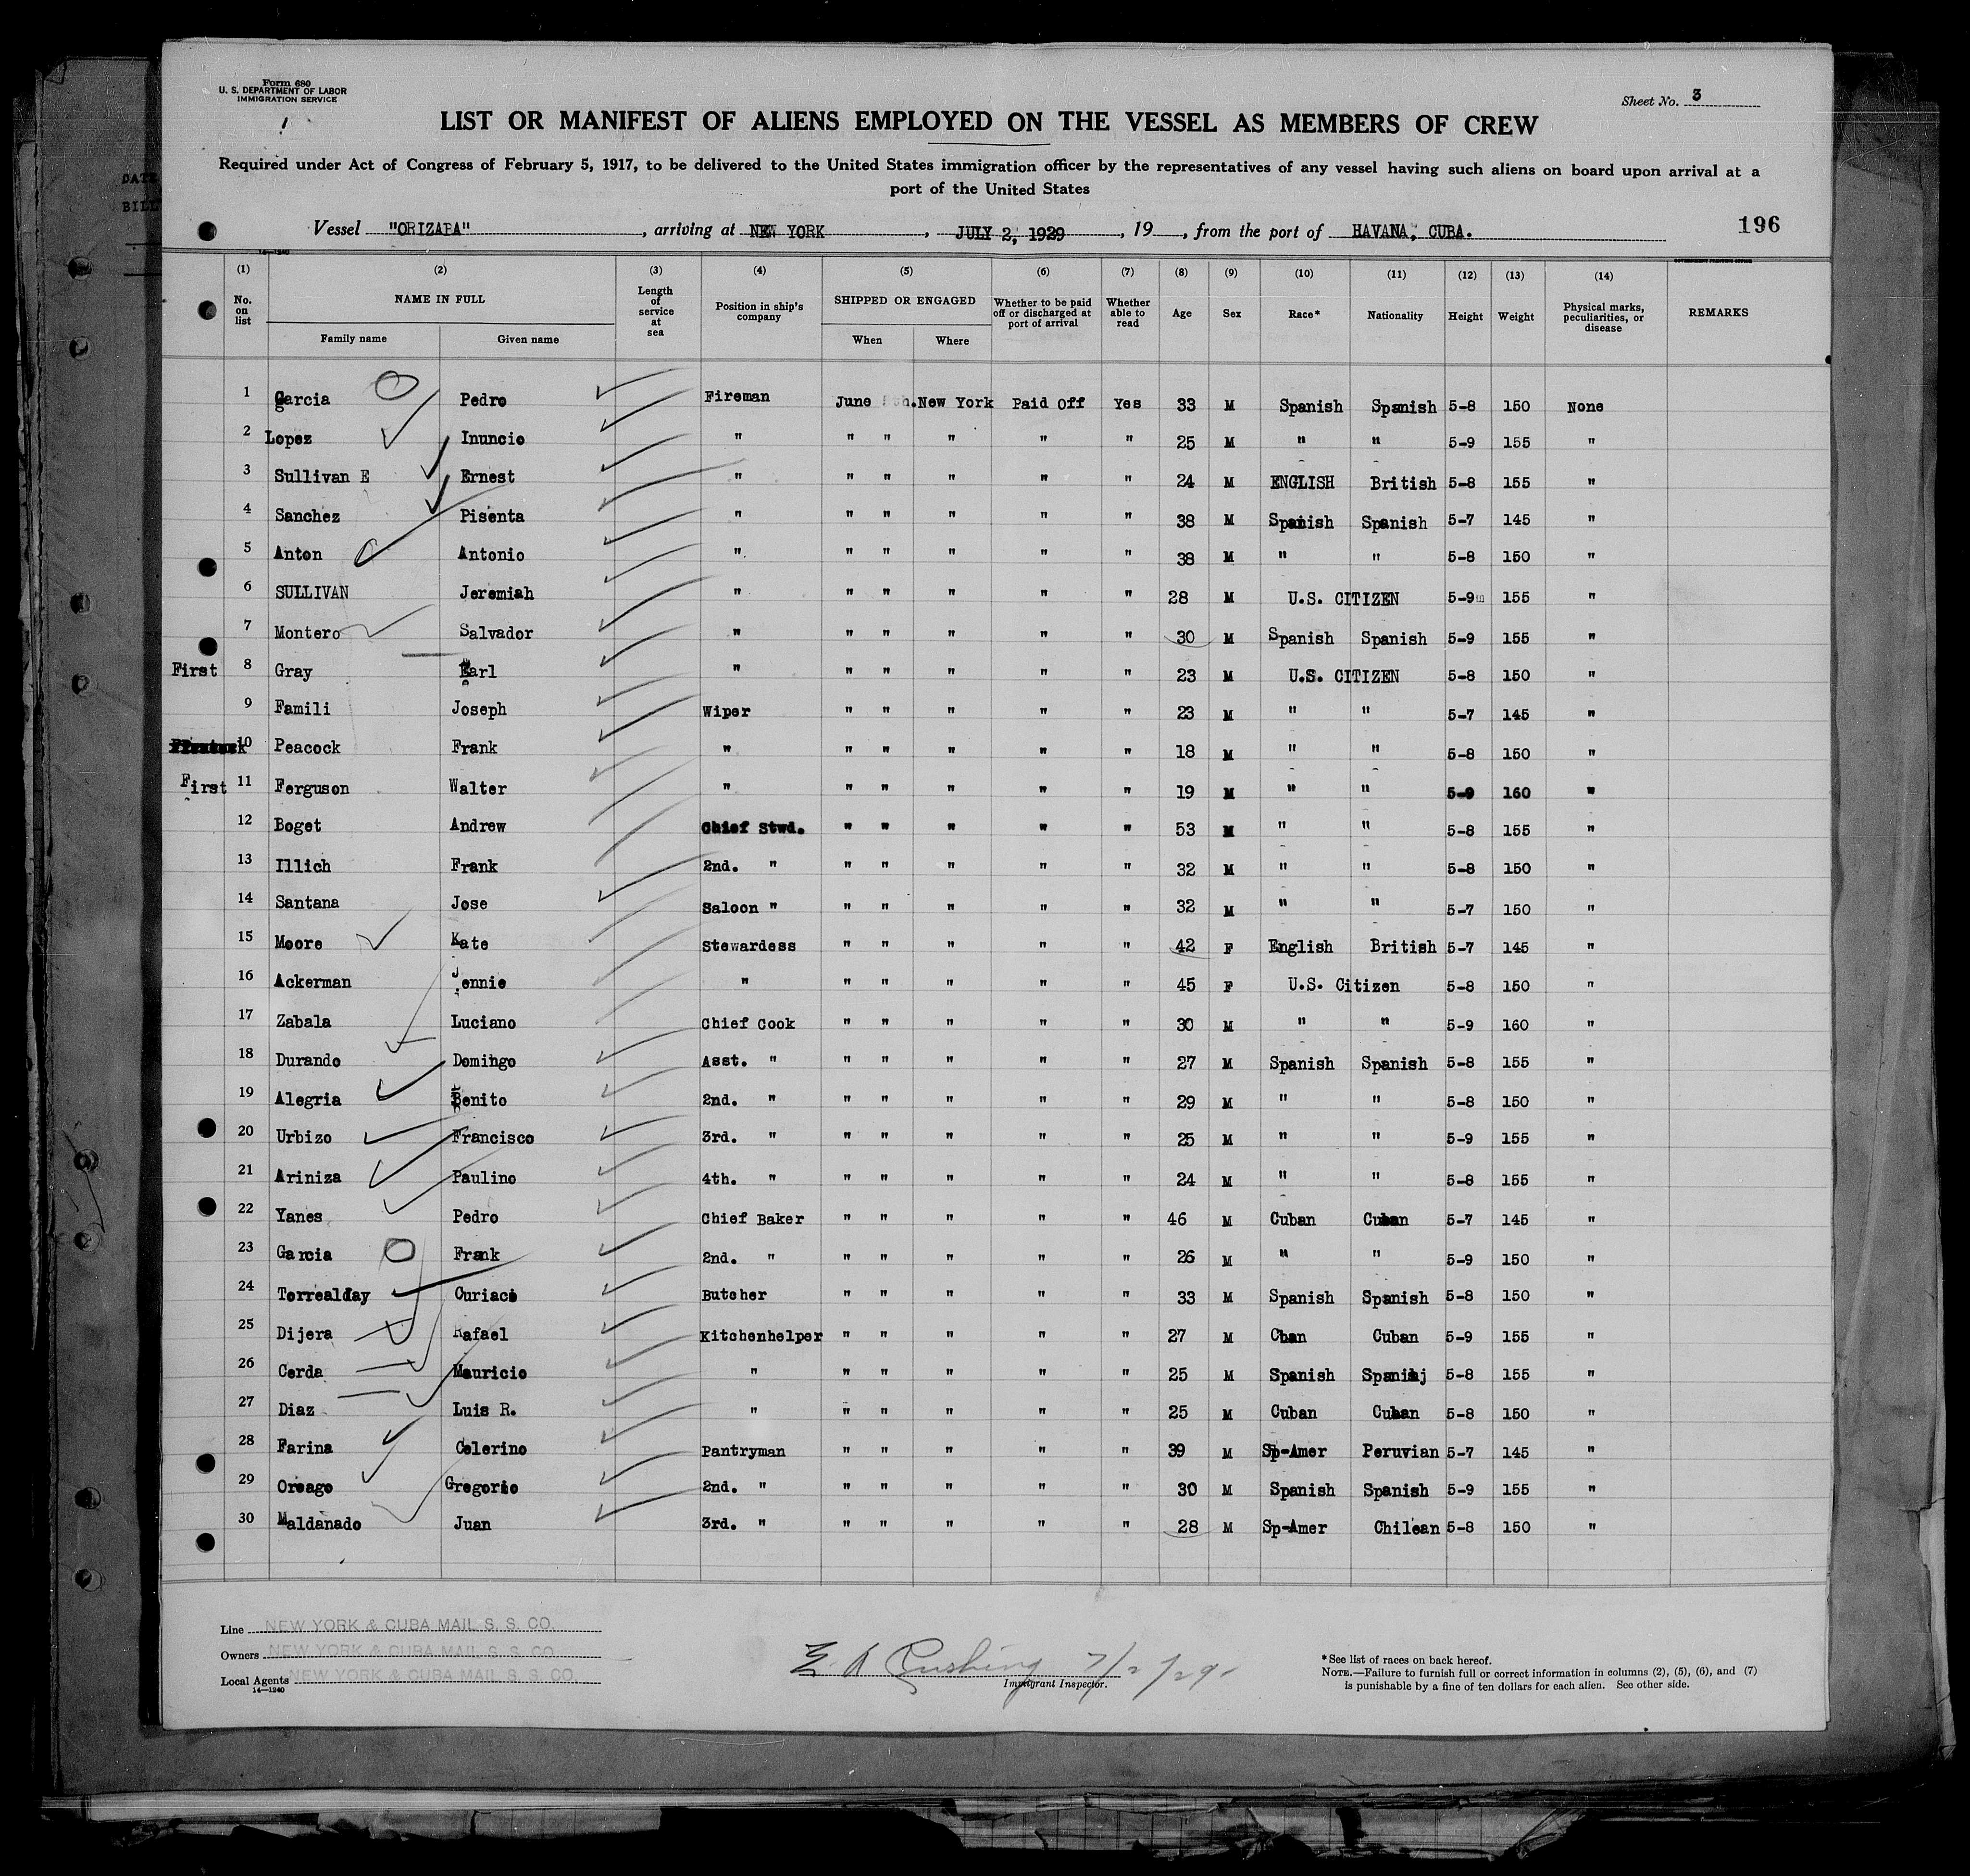 Form 680
U. S. DEPARTMENT OF LABOR
IMMIGRATION SERVICE
Sheet No. 3
LIST OR MANIFEST OF ALIENS EMPLOYED ON THE VESSEL AS MEMBERS OF CREW
Required under Act of Congress of February 5, 1917, to be delivered to the United States immigration officer by the representatives of any vessel having such aliens on board upon arrival at a
port of the United States
Vessel "ORIZABA", arriving at NEW YORK, JULY 2, 1929, 19, from the port of HAVANA, CUBA. 196
14—1240
(1) (2) (3) (4) (5) (6) (7) (8) (9) (10) (11) (12) (13) (14)
No. on list NAME IN FULL Family name Given name Length of service at sea Position in ship's company SHIPPED OR ENGAGED When Where Whether to be paid off or discharged at port of arrival Whether able to read Age Sex Race* Nationality Height Weight Physical marks, peculiarities, or disease REMARKS
1 Garcia Pedro Fireman June New York Paid Off Yes 33 M Spanish Spanish 5-8 150 None
2 Lopez Inuncio " " " " " " 25 M " " 5-9 155 "
3 Sullivan E Ernest " " " " " " 24 M ENGLISH British 5-8 155 "
4 Sanchez Pisenta " " " " " " 38 M Spanish Spanish 5-7 145 "
5 Anton Antonio " " " " " " 38 M " " 5-8 150 "
6 SULLIVAN Jeremiah " " " " " " 28 M U.S. CITIZEN 5-9 155 "
7 Montero Salvador " " " " " " 30 M Spanish Spanish 5-9 155 "
First 8 Gray Earl " " " " " " 23 M U.S. CITIZEN 5-8 150 "
9 Famili Joseph Wiper " " " " " 23 M " " 5-7 145 "
10 Peacock Frank " " " " " " 18 M " " 5-8 150 "
First 11 Ferguson Walter " " " " " " 19 M " " 5-9 160 "
12 Boget Andrew Chief Stwd. " " " " " 53 M " " 5-8 155 "
13 Illich Frank 2nd. " " " " " " 32 M " " 5-8 150 "
14 Santana Jose Saloon " " " " " " 32 M " " 5-7 150 "
15 Moore Kate Stewardess " " " " " 42 F English British 5-7 145 "
16 Ackerman Jennie " " " " " " 45 F U.S. Citizen 5-8 150 "
17 Zabala Luciano Chief Cook " " " " " 30 M " " 5-9 160 "
18 Durando Domingo Asst. " " " " " " 27 M Spanish Spanish 5-8 155 "
19 Alegria Benito 2nd. " " " " " " 29 M " " 5-8 150 "
20 Urbizo Francisco 3rd. " " " " " " 25 M " " 5-9 155 "
21 Ariniza Paulino 4th. " " " " " " 24 M " " 5-8 155 "
22 Yanes Pedro Chief Baker " " " " " 46 M Cuban Cuban 5-7 145 "
23 Garcia Frank 2nd. " " " " " " 26 M " " 5-9 150 "
24 Torrealday Curiaco Butcher " " " " " 33 M Spanish Spanish 5-8 150 "
25 Dijera Rafael Kitchenhelper " " " " " 27 M Cban Cuban 5-9 155 "
26 Cerda Mauricio " " " " " " 25 M Spanish Spanihj 5-8 155 "
27 Diaz Luis R. " " " " " " 25 M Cuban Cuban 5-8 150 "
28 Farina Celerino Pantryman " " " " " 39 M Sp-Amer Peruvian 5-7 145 "
29 Oreago Gregorio 2nd. " " " " " " 30 M Spanish Spanish 5-9 155 "
30 Maldanado Juan 3rd. " " " " " " 28 M Sp-Amer Chilean 5-8 150 "
Line NEW YORK & CUBA MAIL S. S. CO.
Owners NEW YORK & CUBA MAIL S. S. CO.
Local Agents NEW YORK & CUBA MAIL S. S. CO.
14—1240
E A Rushing 7/2/29
Immigrant Inspector.
*See list of races on back hereof.
NOTE.—Failure to furnish full or correct information in columns (2), (5), (6), and (7)
is punishable by a fine of ten dollars for each alien. See other side.